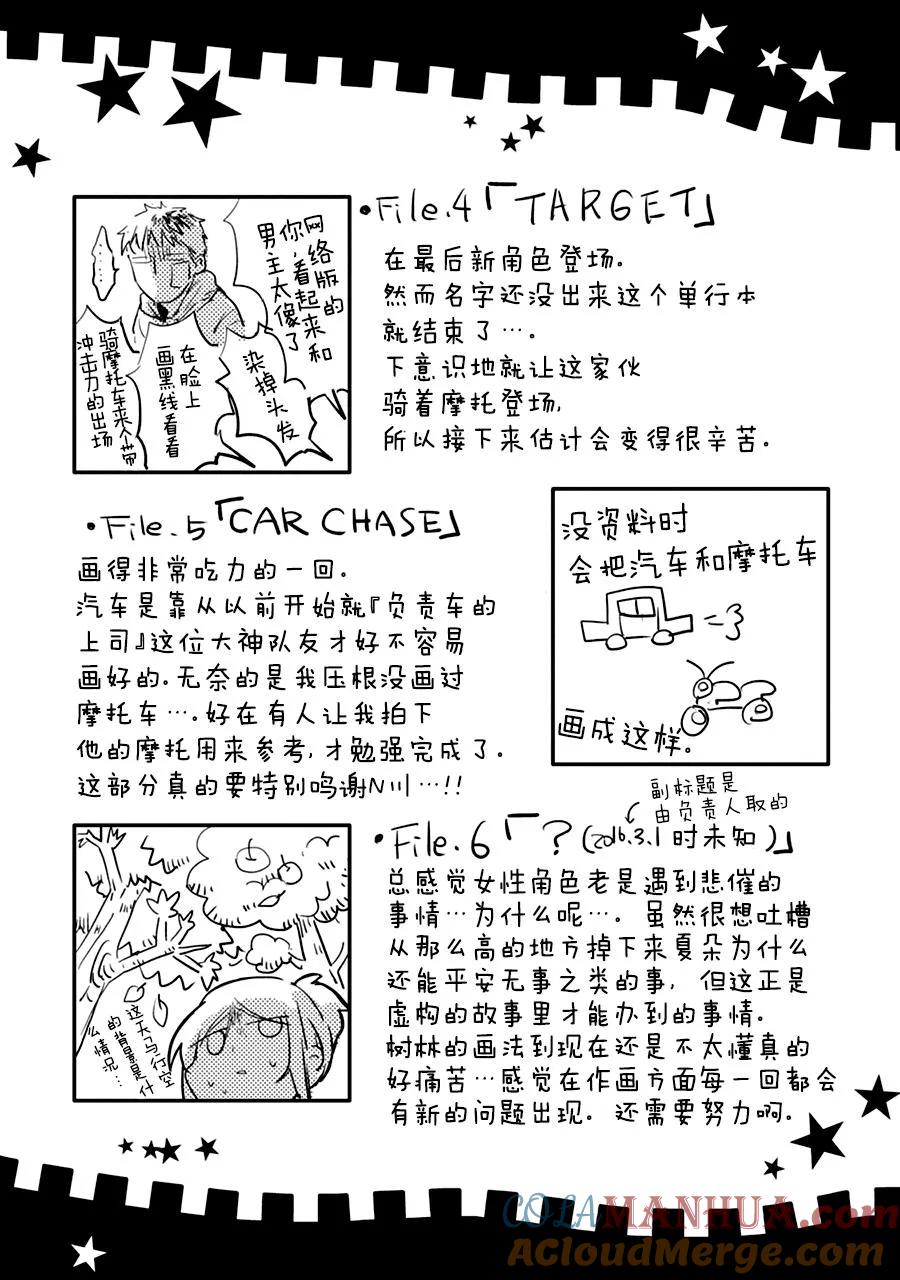 •File.4「TARGET」
在最后新角色登场。
然而名字还没出来这个单行本
就结束了…。
下意识地就让这家伙
骑着摩托登场,
所以接下来估计会变得很辛苦。
网络版的
你,看起来和
男主太像了
……
染掉头发
在脸上
画黑线看看
骑摩托车来个带
冲击力的出场
•File.5「CAR CHASE」
画得非常吃力的一回。
汽车是靠从以前开始就『负责车的
上司』这位大神队友才好不容易
画好的。无奈的是我压根没画过
摩托车…。好在有人让我拍下
他的摩托用来参考,才勉强完成了。
这部分真的要特别鸣谢N川…!!
没资料时
会把汽车和摩托车
画成这样。
副标题是
由负责人取的
•File.6「?(2016.3.1时未知)」
总感觉女性角色老是遇到悲催的
事情…为什么呢…。虽然很想吐槽
从那么高的地方掉下来夏朵为什么
还能平安无事之类的事,但这正是
虚构的故事里才能办到的事情。
树林的画法到现在还是不太懂真的
好痛苦…感觉在作画方面每一回都会
有新的问题出现。还需要努力啊。
这天马行空
的背景是什
么情况…
COLAMANHUA.com
ACloudMerge.com